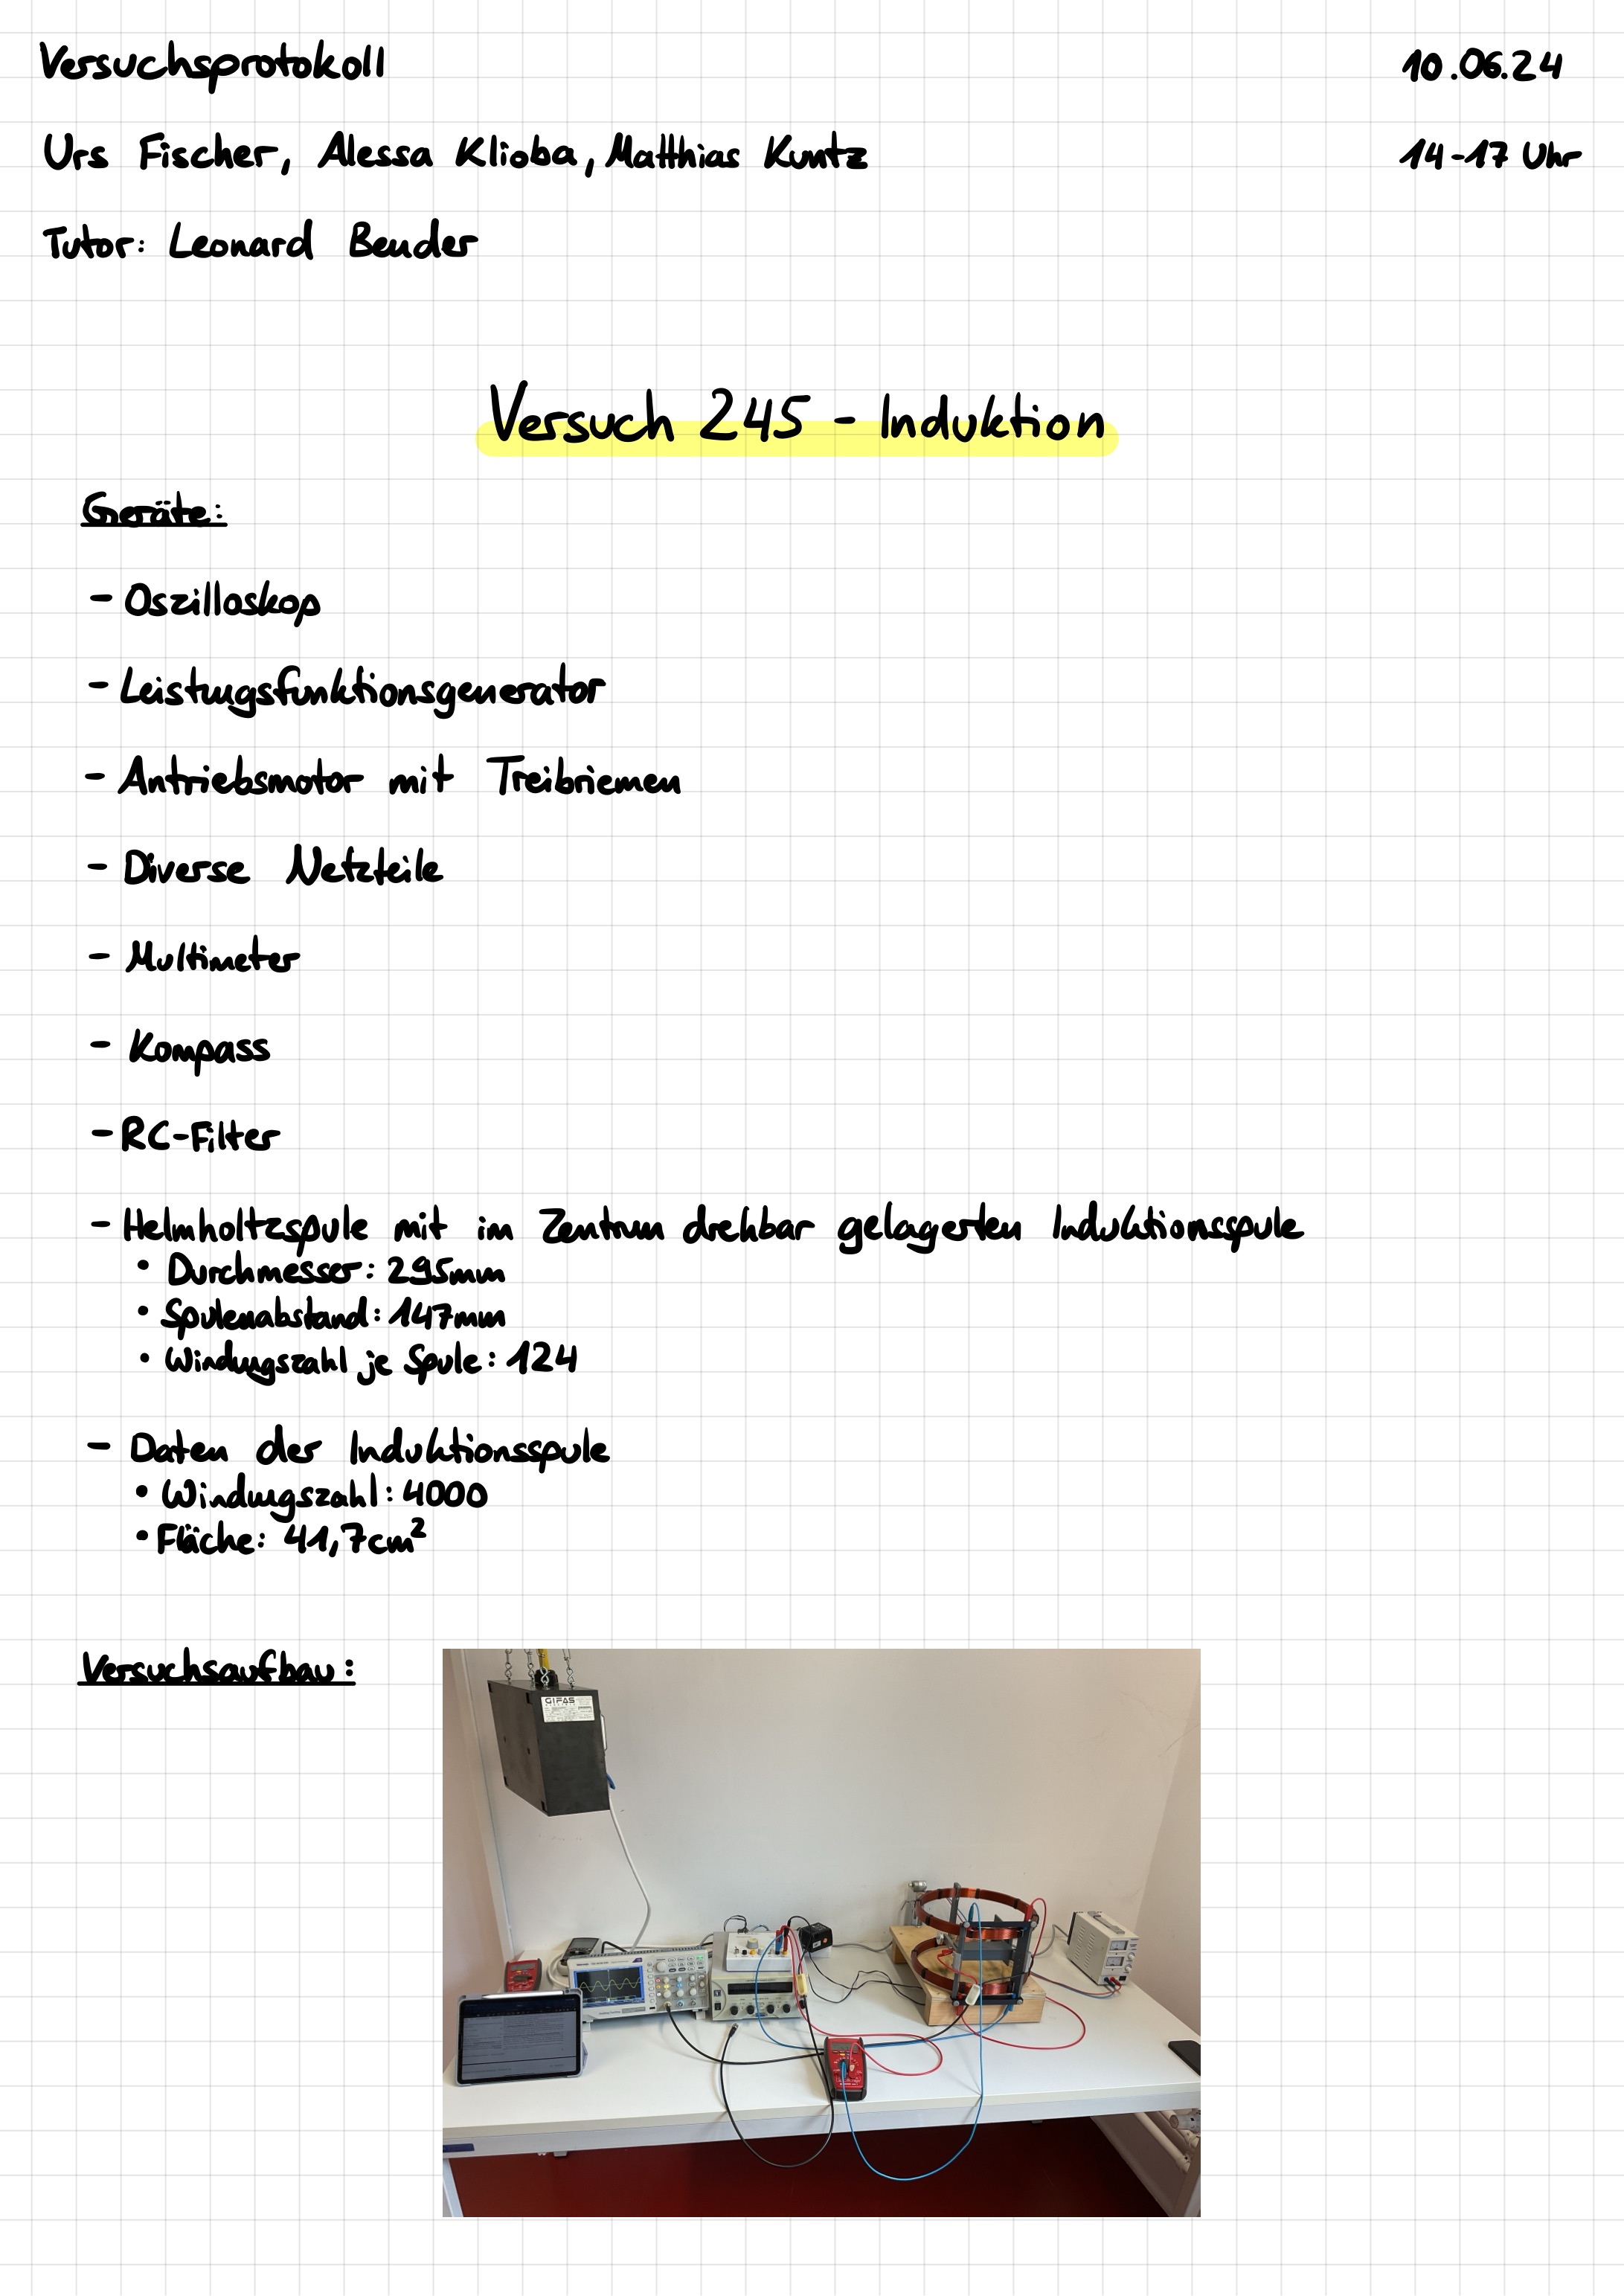 Versuchsprotokoll 10.06.24
Urs Fischer, Alessa Klioba, Matthias Kuntz 14-17 Uhr
Tutor: Leonard Bender
Versuch 245 - Induktion
Geräte:
- Oszilloskop
- Leistungsfunktionsgenerator
- Antriebsmotor mit Treibriemen
- Diverse Netzteile
- Multimeter
- Kompass
- RC-Filter
- Helmholtzspule mit im Zentrum drehbar gelagerten Induktionsspule
• Durchmesser: 295mm
• Spulenabstand: 147mm
• Windungszahl je Spule: 124
- Daten der Induktionsspule
• Windungszahl: 4000
• Fläche: 41,7cm²
Versuchsaufbau:
GIFAS